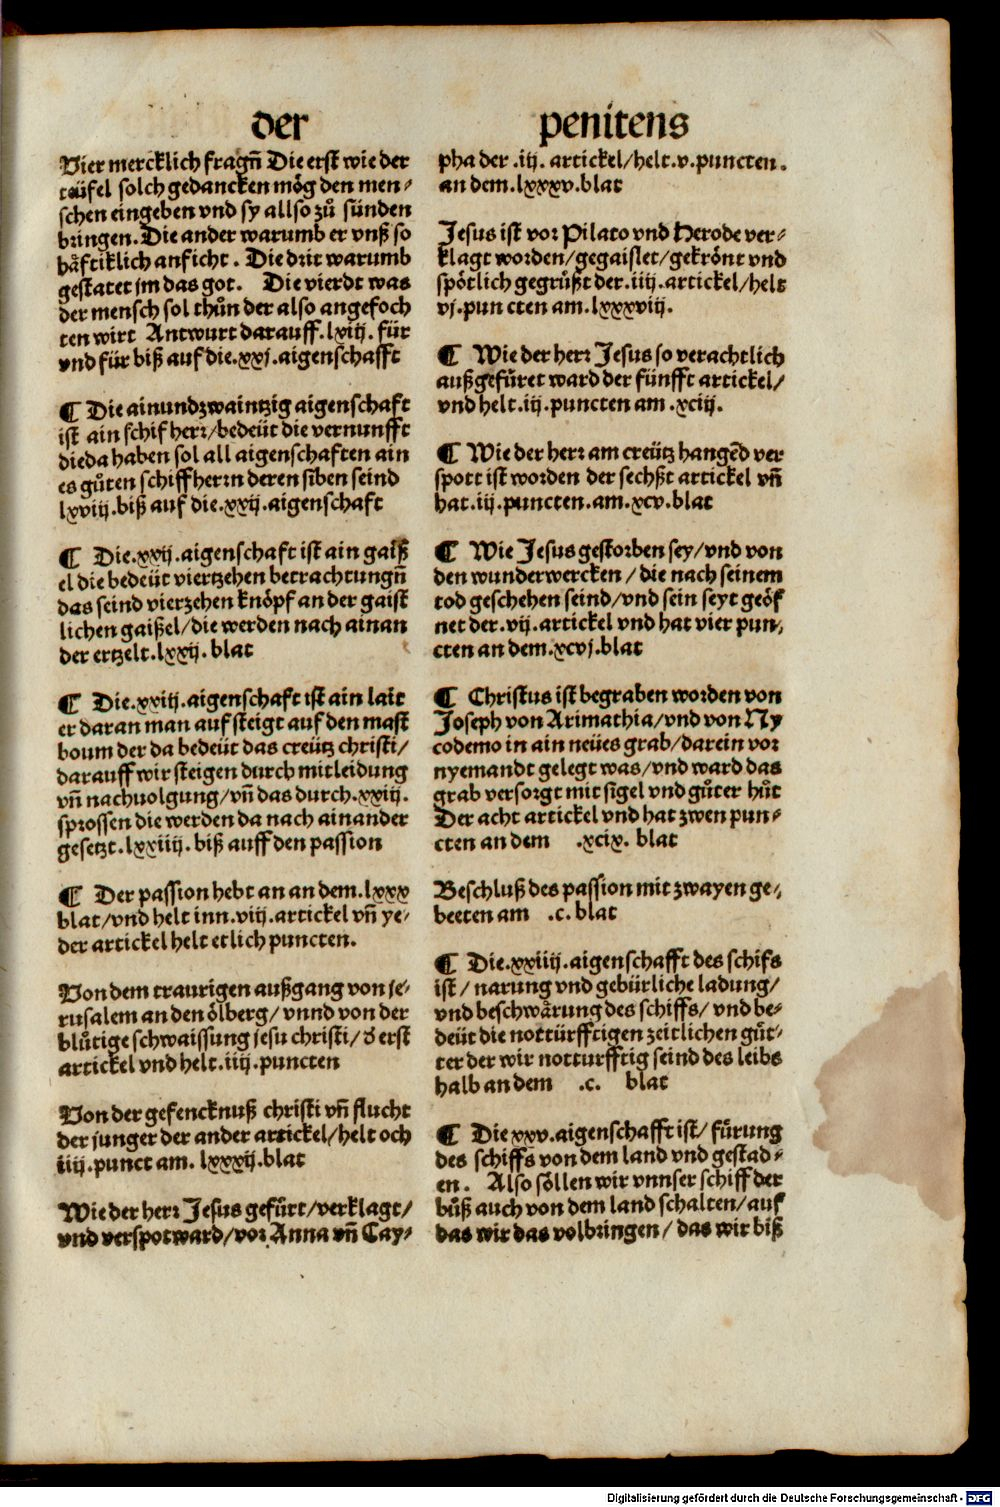 der penitens
Vier mercklich fragn̄ Die erst wie der
teüfel solch gedancken mög den men⸗
schen eingeben vnd sy allso zů sünden
bringen. Die ander warumb er vnß so
håftiklich anficht. Die drit warumb
gestatet jm das got. Die vierdt was
der mensch sol thůn der also angefoch
ten wirt Antwurt darauff .lxiij. für
vnd für biß auf die .xxj. aigenschafft
¶ Die ainundzwaintzig aigenschaft
ist ain schif herr/bedeüt die vernunfft
die da haben sol all aigenschaften ain
es gůten schiffherrn deren siben seind
lxviij. biß auf die .xxij. aigenschaft
¶ Die .xxij. aigenschaft ist ain gaiß
el die bedeüt viertzehen betrachtungn̄
das seind vierzehen knöpf an der gaist
lichen gaißel/die werden nach ainan
der ertzelt .lxxij. blat
¶ Die .xxiij. aigenschaft ist ain lait
er daran man auf steigt auf den mast
boum der da bedeüt das creütz christi/
darauff wir steigen durch mitleidung
vn̄ nachuolgung/vn̄ das durch .xxiij.
sprossen die werden da nach ainander
gesetzt .lxxiiij. biß auff den passion
¶ Der passion hebt an an dem .lxxx
blat/vnd helt inn .viij. artickel vn̄ ye⸗
der artickel helt etlich puncten.
Von dem traurigen außgang von je⸗
rusalem an den ölberg/ vnnd von der
blůtige schwaissung jesu christi/ d̕ erst
artickel vnd helt .iiij. puncten
Von der gefencknuß christi vn̄ flucht
der junger der ander artickel/helt och
iiij. punct am. lxxxij. blat
Wie der herr Jesus gefürt/verklagt/
vnd verspotward/vor Anna vn̄ Cay⸗
pha der .iij. artickel/helt .v. puncten.
an dem .lxxxv. blat
Jesus ist vor Pilato vnd Herode ver⸗
klagt worden/gegaislet/gekrönt vnd
spötlich gegrüßt der .iiij. artickel/helt
vj. pun cten am. lxxxviij.
¶ Wie der herr Jesus so verachtlich
außgefüret ward der fünfft artickel/
vnd helt .iij. puncten am .xciij.
¶ Wie der herr am creütz hangēd ver
spott ist worden der sechßt artickel vn̄
hat .iij. puncten. am .xcv. blat
¶ Wie Jesus gestorben sey/vnd von
den wunderwercken / die nach seinem
tod geschehen seind/vnd sein seyt geöf
net der .vij. artickel vnd hat vier pun⸗
cten an dem .xcvj. blat
¶ Christus ist begraben worden von
Joseph von Arimathia/vnd von Ny
codemo in ain neües grab/darein vor
nyemandt gelegt was/vnd ward das
grab versorgt mit sigel vnd gůter hůt
Der acht artickel vnd hat zwen pun⸗
cten an dem .xcix. blat
Beschluß des passion mit zwayen ge⸗
beeten am .c. blat
¶ Die .xxiiij. aigenschafft des schifs
ist/ narung vnd gebürliche ladung/
vnd beschwärung des schiffs/ vnd be⸗
deüt die nottürfftigen zeitlichen gůt⸗
ter der wir notturfftig seind des leibs
halb an dem .c. blat
¶ Die .xxv. aigenschafft ist/ fürung
des schiffs von dem land vnd gestad⸗
en. Also söllen wir vnnser schiff der
bůß auch von dem land schalten/auf
das wir das volbringen/ das wir biß
Digitalisierung gefördert durch die Deutsche Forschungsgemeinschaft - DFG